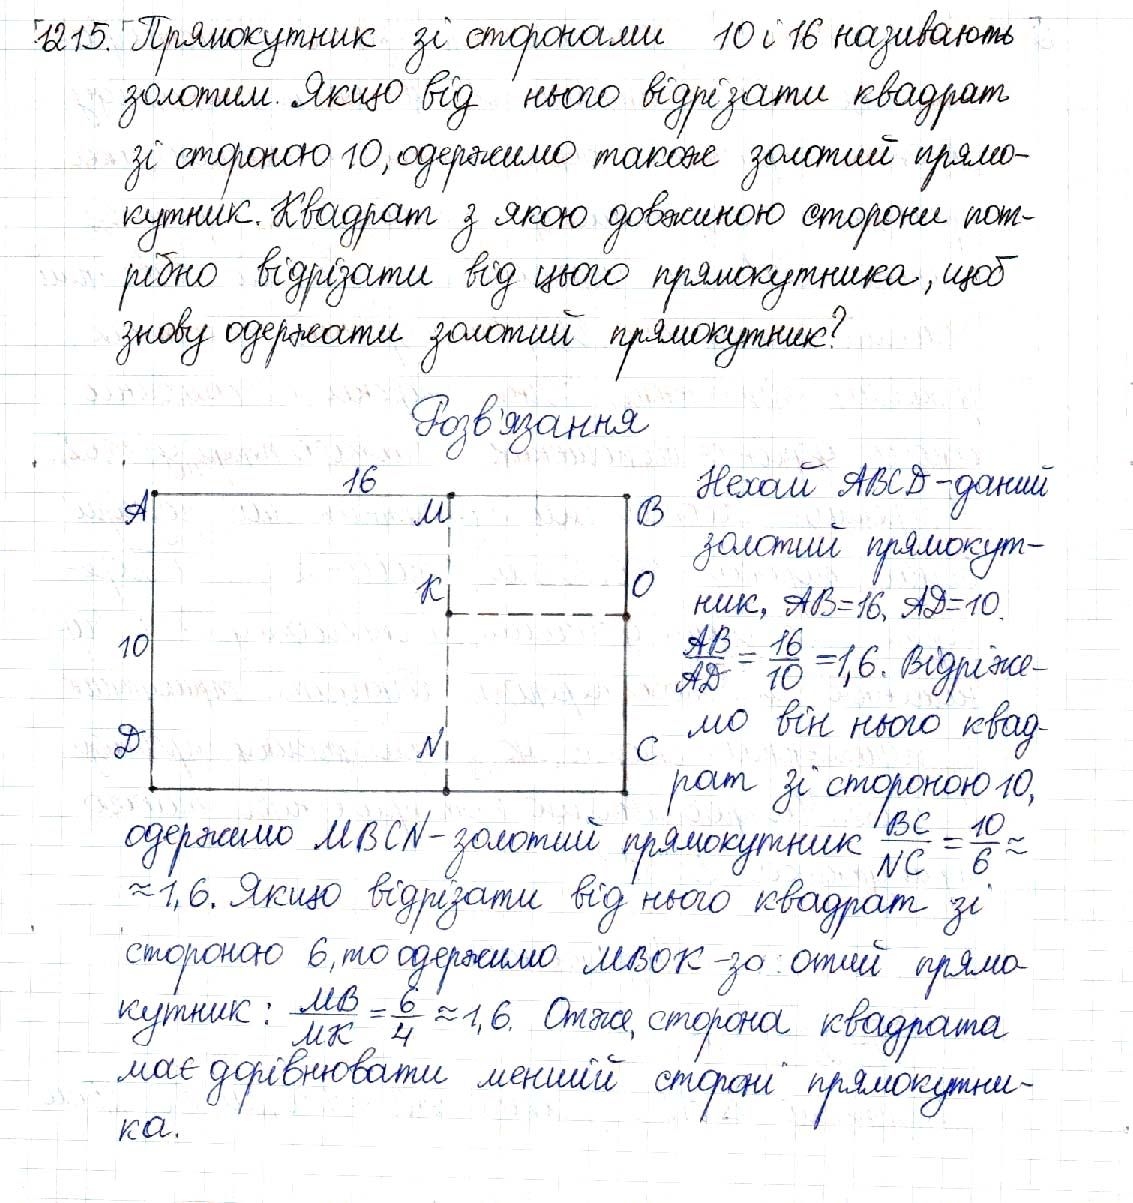 1215. Прямокутник зі сторонами 10 і 16 називають
золотим. Якщо від нього відрізати квадрат
зі стороною 10, одержимо також золотий прямо-
кутник. Квадрат з якою довжиною сторони пот-
рібно відрізати від цього прямокутника, щоб
знову одержати золотий прямокутник?
Розв'язання
16
A M B
K O
10
D N C
Нехай ABCD - даний
золотий прямокут-
ник, AB=16, AD=10.
AB/AD = 16/10 = 1,6. Відріже-
мо він нього квад-
рат зі стороною 10,
одержимо MBCN - золотий прямокутник BC/NC = 10/6 ≈
≈ 1,6. Якщо відрізати від нього квадрат зі
стороною 6, то одержимо MBOK - зо отий прямо
кутник: MB/MK = 6/4 ≈ 1,6. Отже, сторона квадрата
має дорівнювати меншій стороні прямокутни-
ка.